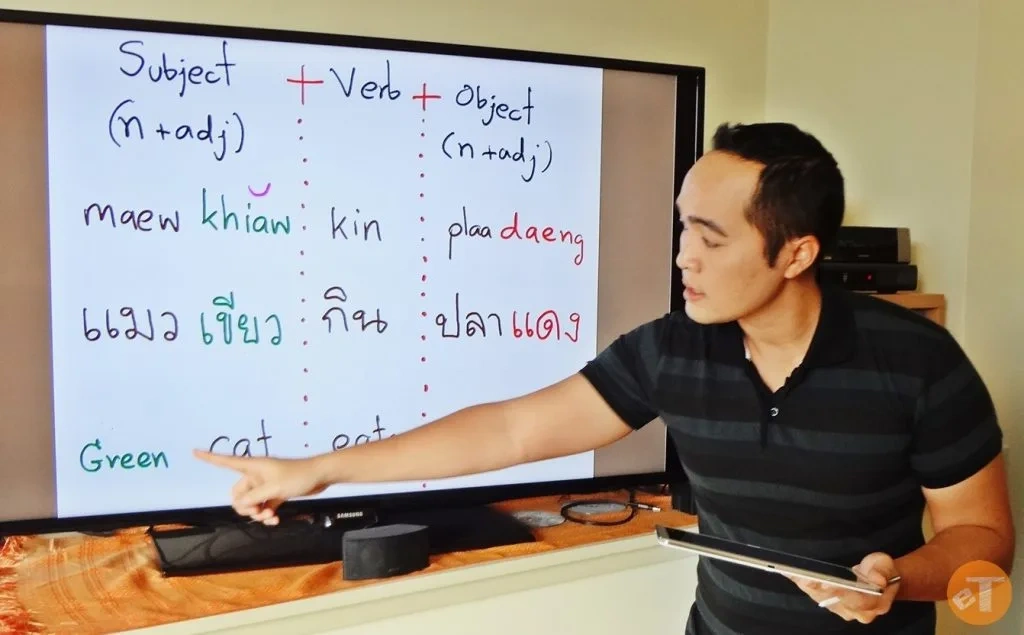 Subject + Verb + Object
(n + adj) (n + adj)
maew khiǎw kin plaa daeng
แมว เขียว กิน ปลา แดง
Green cat
SAMSUNG
eT